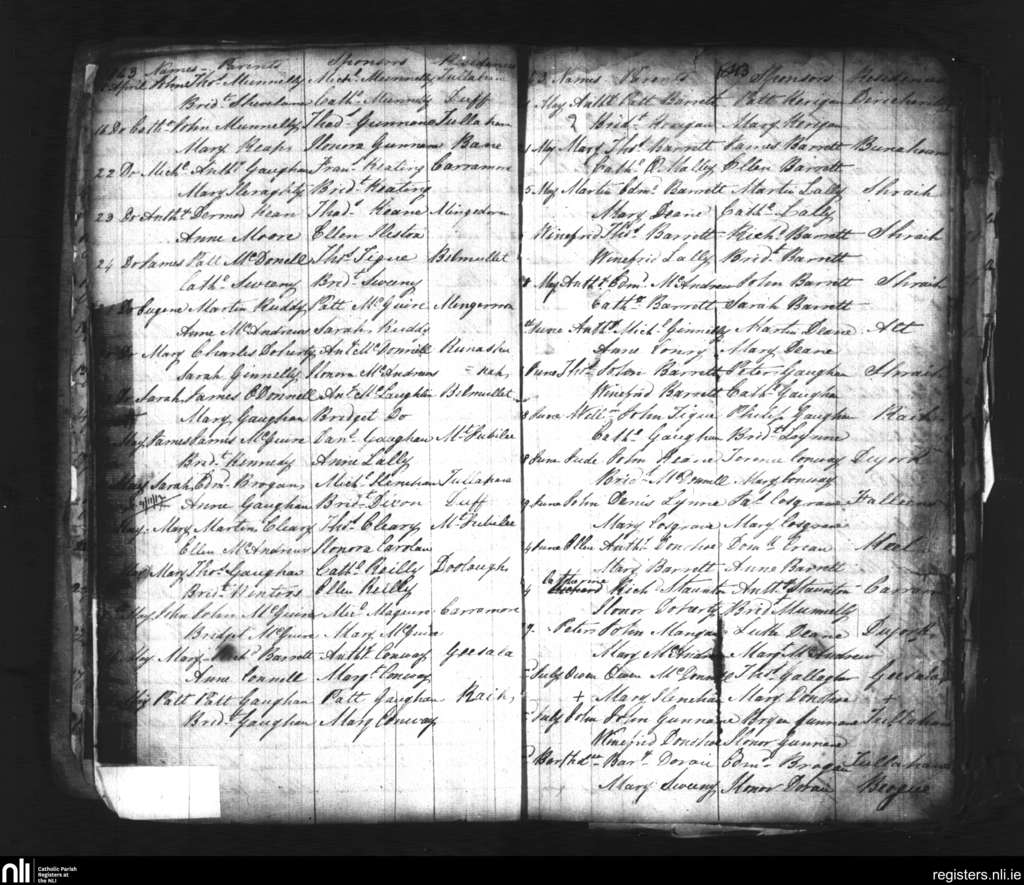 63 Names Parents Sponsors Residences
April Thos. Munnelly Michl. Munnelly Tullaha
Bridt. Cathe. Munnely Duff
Do Cathe. John Munnelly Thads. Gunnane Tullaha
Mary Reaps Honora Gunnane Bane
22 Do Michl. Anthy. Gaughan Frans. Keating Carramore
Mary Heraghty Bridt. Keating
23 Do Antht. Dermod Kean Thads. Keane
Anne Moore Ellen
24 Do James Patt McDonell Thos. Tigue Belmullet
Cathe. Sweeny Bridt. Sweeny
Do Eugene Martin Ruddy Patt McGuire
Anne McAndrew Sarah Ruddy
Do Mary Charles Doherty Ant. McDonnell
Sarah Ginnelly Honora McAndrew
Do Sarah James O'Donnell Ant. McLaughlin Belmullet
Mary Gaughan Bridget Do
May James James McGuire Gaughan Mt. Jubilee
Bridt. Kennedy Anne Lally
May Sarah Edmd. Brogan Michl. Henehan Tullaha
Anne Gaughan Bridt. Dixon Duff
May Mary Martin Cleary Thos. Cleary Mt. Jubilee
Ellen McAndrew Honora Carolan
Mary Thos. Gaughan Cathe. Reilly Doolough
Bridt. Winters Ellen Reilly
May John John McGuire Michl. Maguire Carramore
Bridget McGuire Mary McGuire
May Mary Michl. Barrett Antht. Conway Geesala
Anne Connell Margt. Conway
May Patt Patt Gaughan Patt Gaughan Raith
Bridt. Gaughan Mary Conway
63 Names Parents 63 Sponsors Residence
May Antht. Patt Barrett Patt Kerigan
Bridt. Kerigan Mary Kerigan
May Mary Thos. Barrett James Barrett Bunahown
Cathe. O'Mally Ellen Barrett
5 May Martin Edmd. Barrett Martin Lally Shraih
Mary Deane Cathe. Lally
Winefrid Thos. Barrett Richd. Barrett Shraih
Winefrid Lally Bridt. Barrett
May Antht. Edmd. McAndrew John Barrett Shraih
Cathe. Barrett Sarah Barrett
June Antht. Michl. Ginnelly Martin Deane Att
Anne Conry Mary Deane
June Thos. John Barrett Peter Gaughan Shraih
Winefrid Barrett Cathe. Gaughan
June Willm. John Tigue Philip Gaughan Raith
Cathe. Gaughan Bridt. Lynne
June Jude John Deane Terence Conway Duyork
Bridt. McDonnell Mary Conway
9 June John Denis Lynne Pat Cosgrave
Mary Cosgrave Mary Cosgrave
June Ellen Anthy. Donohoe Crean
Mary Barrett Anne Barrett
Catherine
Richard Richd. Staunton Antht. Staunton Carramore
Honor Doharty Bridt. Munnelly
Peter John Mangan Luke Deane Duyork
Mary McAndrew Mary McAndrew
July Owen Owen McDonnell Thos. Gallagher Geesala
+ Mary Henehan Mary Donohoe +
July John John Gunnane Bryan Gunnane Tullaha
Winefrid Donohoe Honor Gunnane
Bart. Doran Edmd. Brogan Tullahane
Mary Sweeny Honor Doran Beogue
nli Catholic Parish
Registers at
the NLI
registers.nli.ie